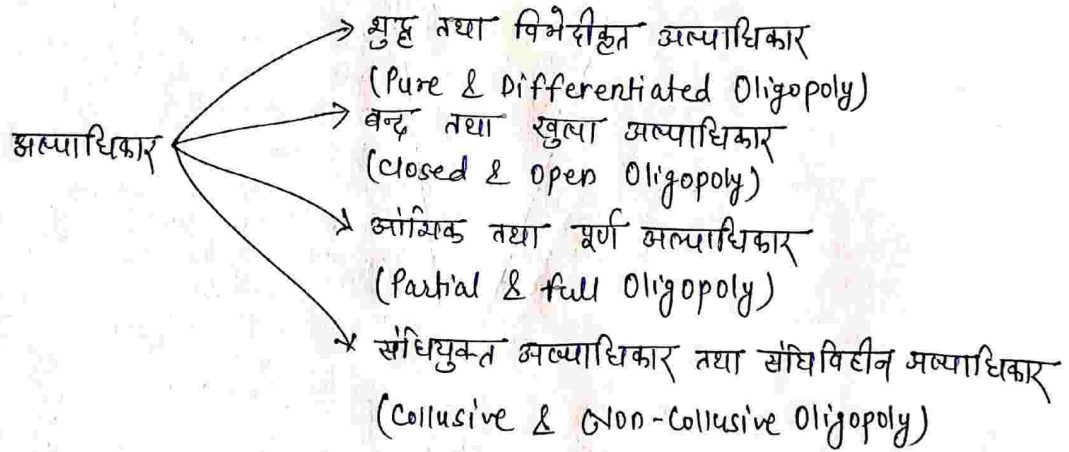 शुद्ध तथा विभेदीकृत अल्पाधिकार
(Pure & Differentiated Oligopoly)
बन्द तथा खुला अल्पाधिकार
(Closed & Open Oligopoly)
अल्पाधिकार
आंशिक तथा पूर्ण अल्पाधिकार
(Partial & full Oligopoly)
संधियुक्त अल्पाधिकार तथा संधिविहीन अल्पाधिकार
(Collusive & Non-Collusive Oligopoly)